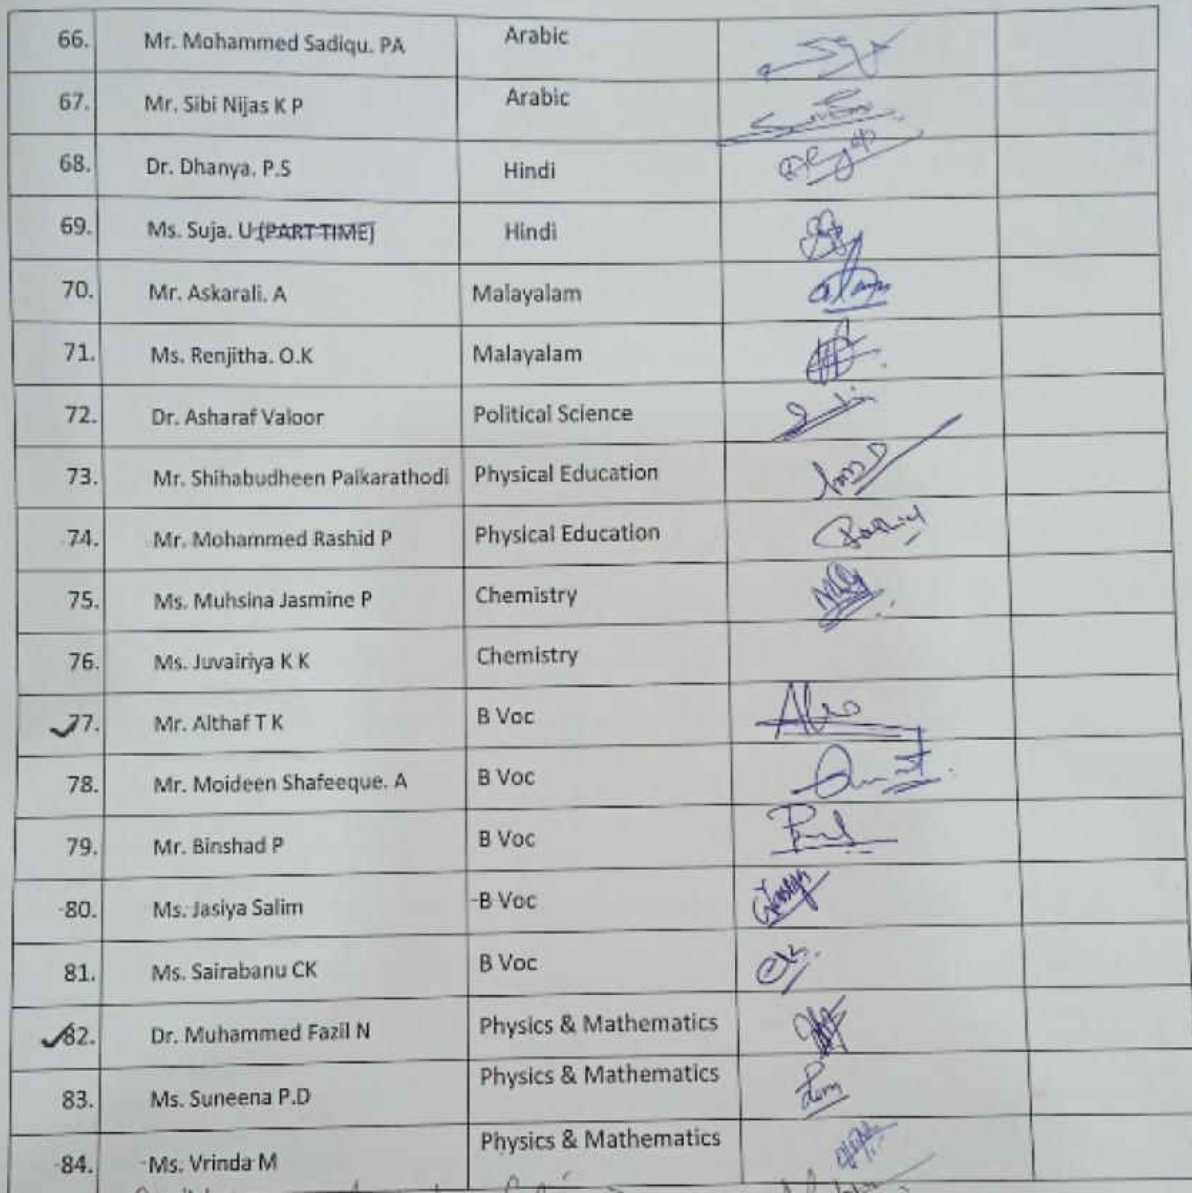 66. Mr. Mohammed Sadiqu. PA Arabic
67. Mr. Sibi Nijas K P Arabic
68. Dr. Dhanya. P.S Hindi
69. Ms. Suja. U (PART TIME) Hindi
70. Mr. Askarali. A Malayalam
71. Ms. Renjitha. O.K Malayalam
72. Dr. Asharaf Valoor Political Science
73. Mr. Shihabudheen Palkarathodi Physical Education
74. Mr. Mohammed Rashid P Physical Education
75. Ms. Muhsina Jasmine P Chemistry
76. Ms. Juvairiya K K Chemistry
77. Mr. Althaf T K B Voc
78. Mr. Moideen Shafeeque. A B Voc
79. Mr. Binshad P B Voc
80. Ms. Jasiya Salim B Voc
81. Ms. Sairabanu CK B Voc
82. Dr. Muhammed Fazil N Physics & Mathematics
83. Ms. Suneena P.D Physics & Mathematics
84. Ms. Vrinda M Physics & Mathematics